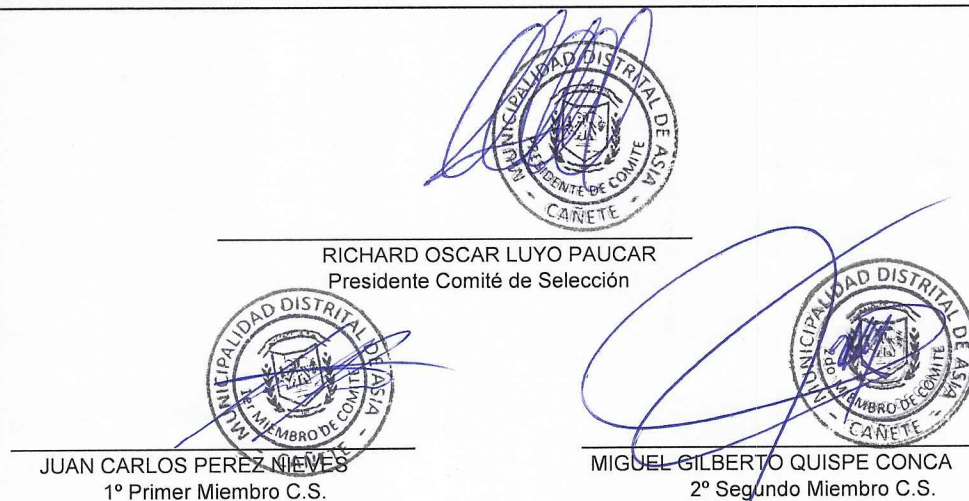 MUNICIPALIDAD DISTRITAL DE ASIA
PRESIDENTE DE COMITE
- CAÑETE -
RICHARD OSCAR LUYO PAUCAR
Presidente Comité de Selección
MUNICIPALIDAD DISTRITAL DE ASIA
1er MIEMBRO DE COMITE
- CAÑETE -
JUAN CARLOS PEREZ NIEVES
1º Primer Miembro C.S.
MUNICIPALIDAD DISTRITAL DE ASIA
2do. MIEMBRO DE COMITE
- CAÑETE -
MIGUEL GILBERTO QUISPE CONCA
2º Segundo Miembro C.S.